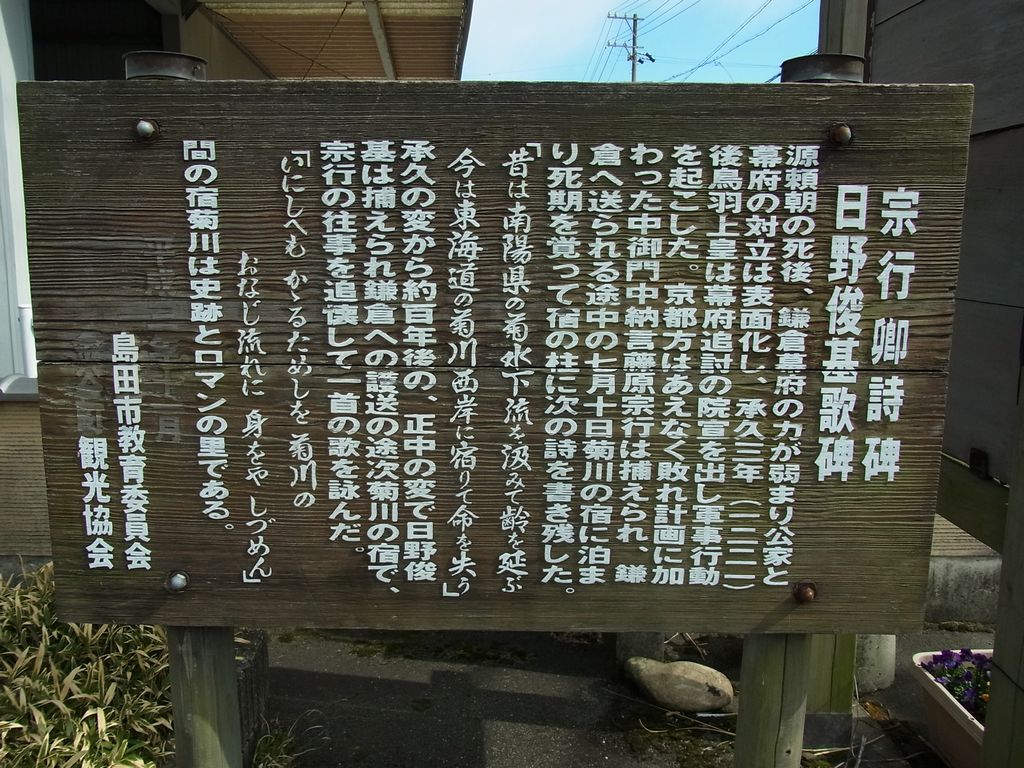 宗行卿詩碑
日野俊基歌碑
源頼朝の死後、鎌倉幕府の力が弱まり公家と
幕府の対立は表面化し、承久三年（一二二一）
後鳥羽上皇は幕府追討の院宣を出し軍事行動
を起こした。京都方はあえなく敗れ計画に加
わった中御門中納言藤原宗行は捕えられ、鎌
倉へ送られる途中の七月十日菊川の宿に泊ま
り死期を覚って宿の柱に次の詩を書き残した。
「昔は南陽県の菊水下流を汲みて齢を延ぶ
今は東海道の菊川西岸に宿りて命を失う」
承久の変から約百年後の、正中の変で日野俊
基は捕えられ鎌倉への護送の途次菊川の宿で、
宗行の往事を追懐して一首の歌を詠んだ。
「いにしへも かゝるためしを 菊川の
おなじ流れに 身をや しづめん」
間の宿菊川は史跡とロマンの里である。
島田市教育委員会
観光協会